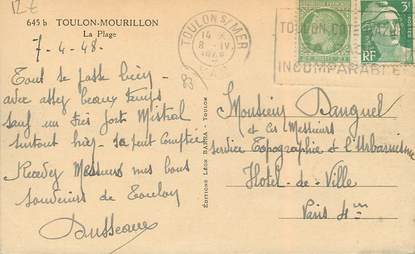 12 €
645 b TOULON-MOURILLON
La Plage
7-4-48.
Tout se passe bien,
avec assez beau temps
sauf un très fort Mistral
surtout hier - sa peut compter
Recevez Messieurs mes bons
souvenirs de Toulon
83
ÉDITIONS LÉON BARRA - TOULON
TOULON S/MER
14 H
8 - IV
VAR
TOULON
INCOMPARABLE
RF
3F
Monsieur Danguel
et les Messieurs
Service Topographie et l'Urbanisme
Hotel-de-Ville
Paris 4em